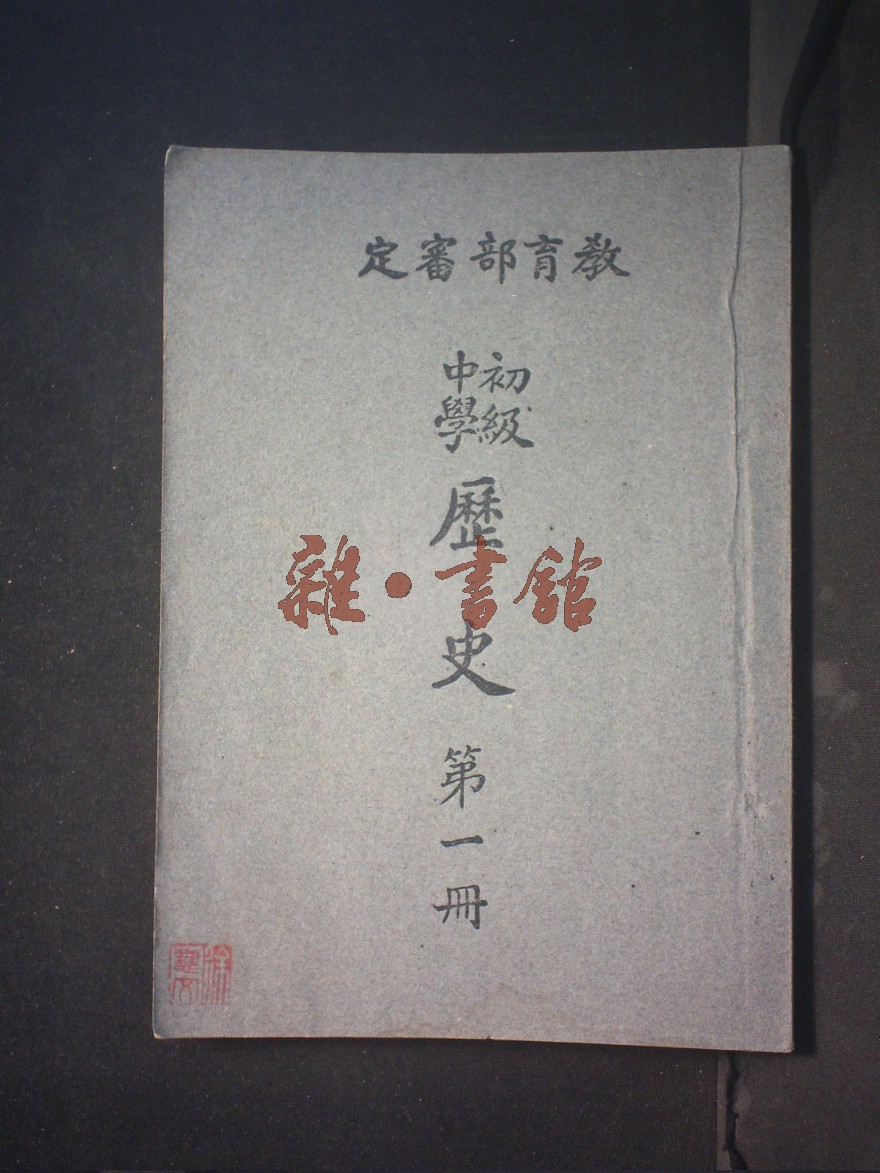 教育部審定
初級
中學
歷史
第一冊
雜·書館